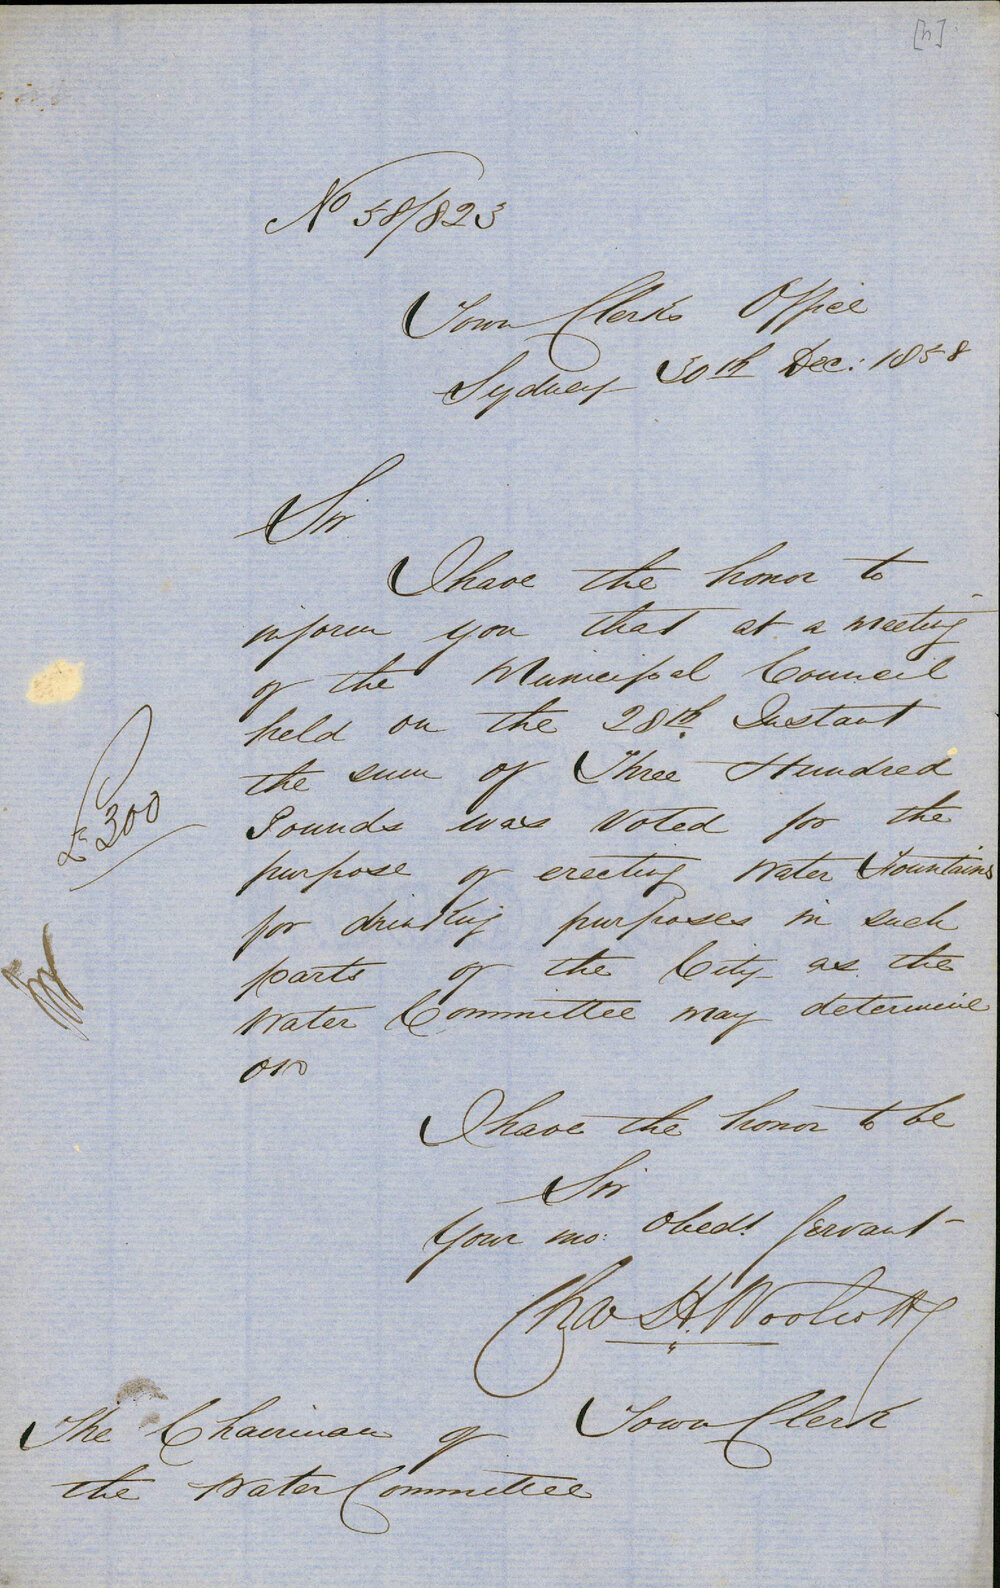 [h]
No 58/823
Town Clerks Office
Sydney 30th Dec: 1858
Sir
I have the honor to
inform you that at a meeting
of the Municipal Council
held on the 28th Instant
the sum of Three Hundred
Pounds was Voted for the
£300
purpose of erecting Water Fountains
for drinking purposes in such
parts of the City as the
Water Committee may determine
on
I have the honor to be
Sir
Your mo: Obedt Servant
Chas H. Woolcott
Town Clerk
The Chairman of
the Water Committee